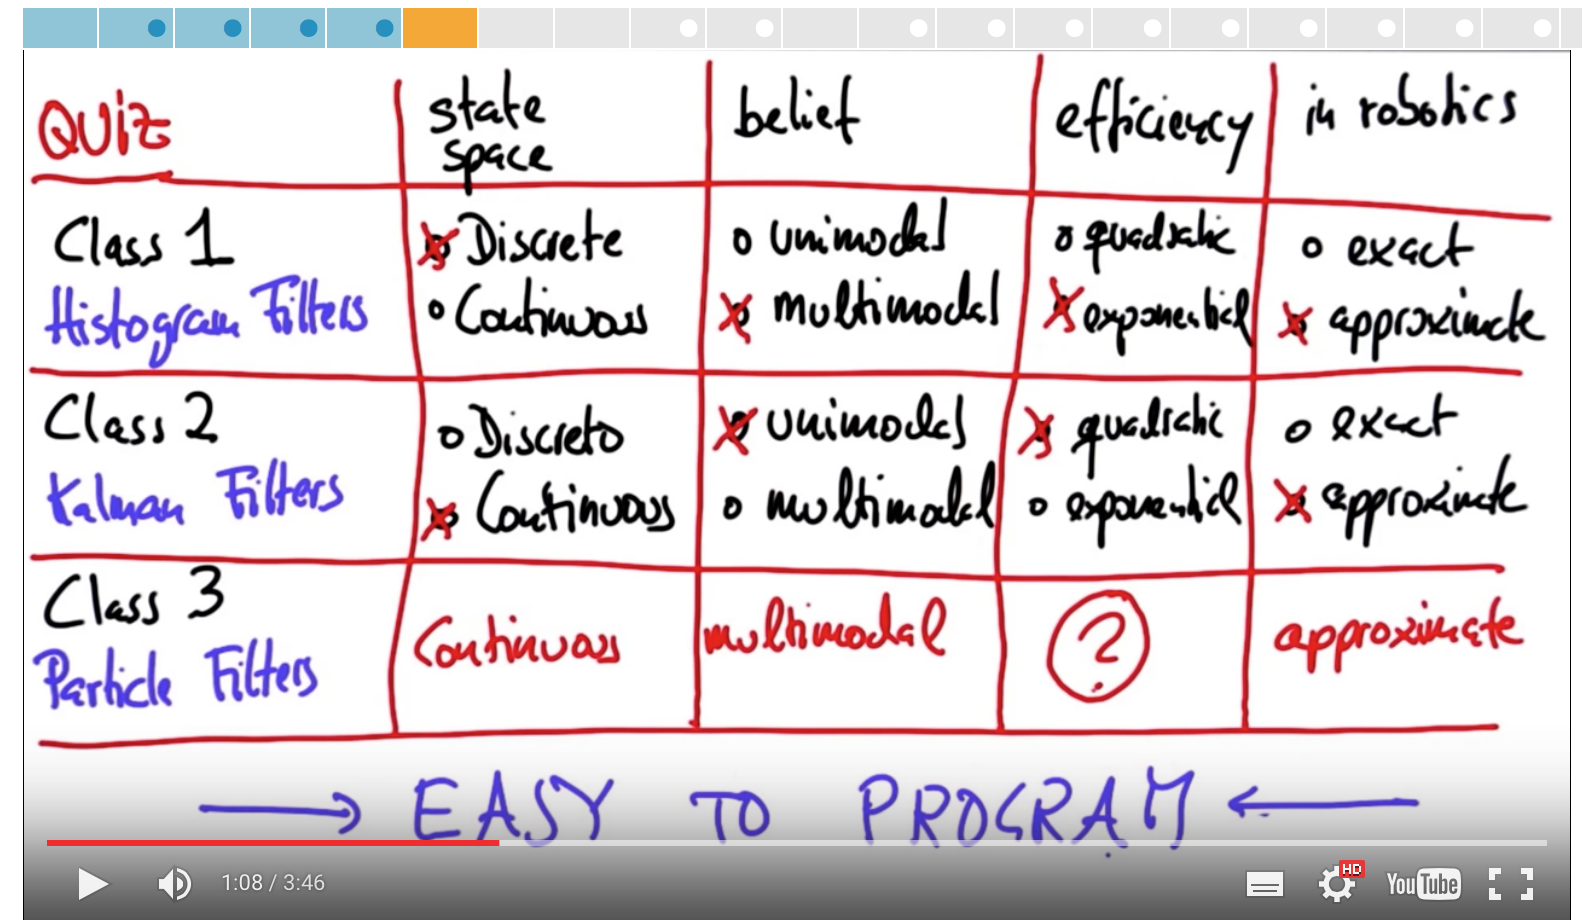 QUIZ
state space
belief
efficiency
in robotics
Class 1
Histogram Filters
Discrete
Continuous
unimodal
multimodal
quadratic
exponential
exact
approximate
Class 2
Kalman Filters
Discrete
Continuous
unimodal
multimodal
quadratic
exponential
exact
approximate
Class 3
Particle Filters
Continuous
multimodal
?
approximate
EASY TO PROGRAM
1:08 / 3:46
HD
YouTube